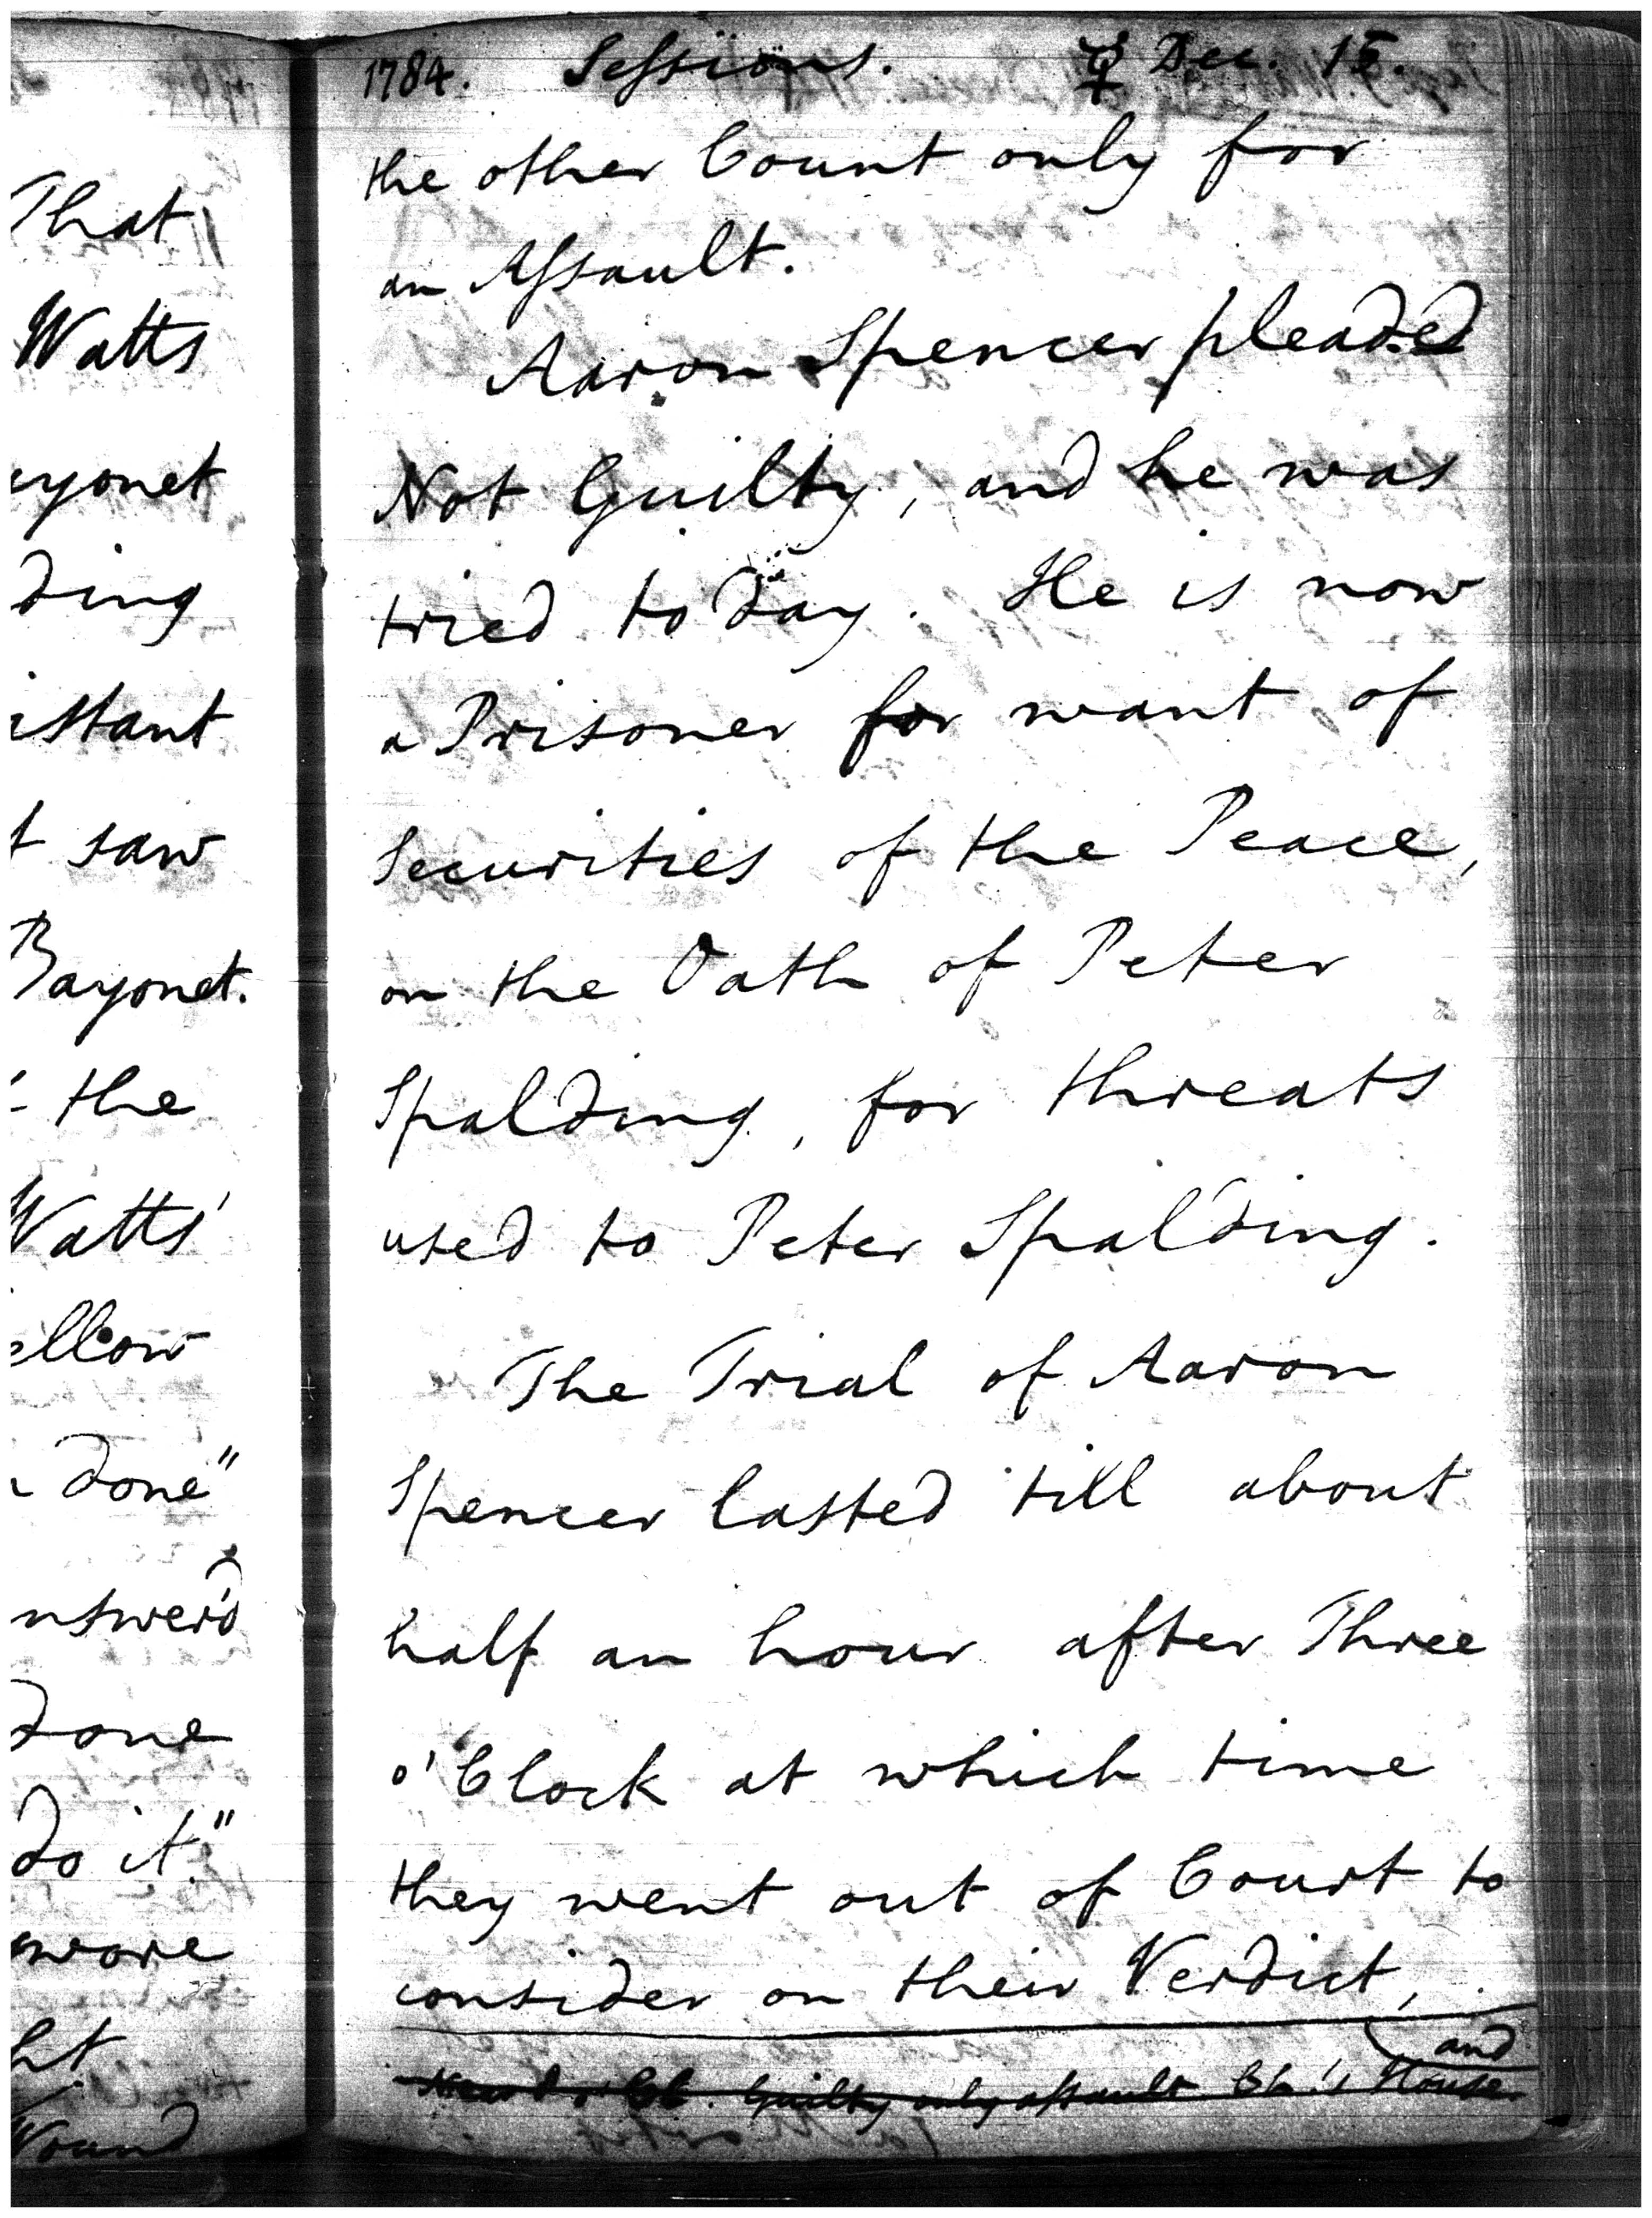 That
Watts
ayonet
ding
istant
t saw
Bayonet.
the
Watts'
ellow
done"
nswer'd
done
do it"
swore
ht
Wound
1784. Sessions. ☿ Dec. 15.
the other Count only for
an Assault.
Aaron Spencer pleaded
Not Guilty, and he was
tried to day. He is now
a Prisoner for want of
Securities of the Peace,
on the Oath of Peter
Spalding, for threats
used to Peter Spalding.
The Trial of Aaron
Spencer lasted till about
half an hour after Three
o'Clock at which time
they went out of Court to
consider on their Verdict,
and
Guilty only assault